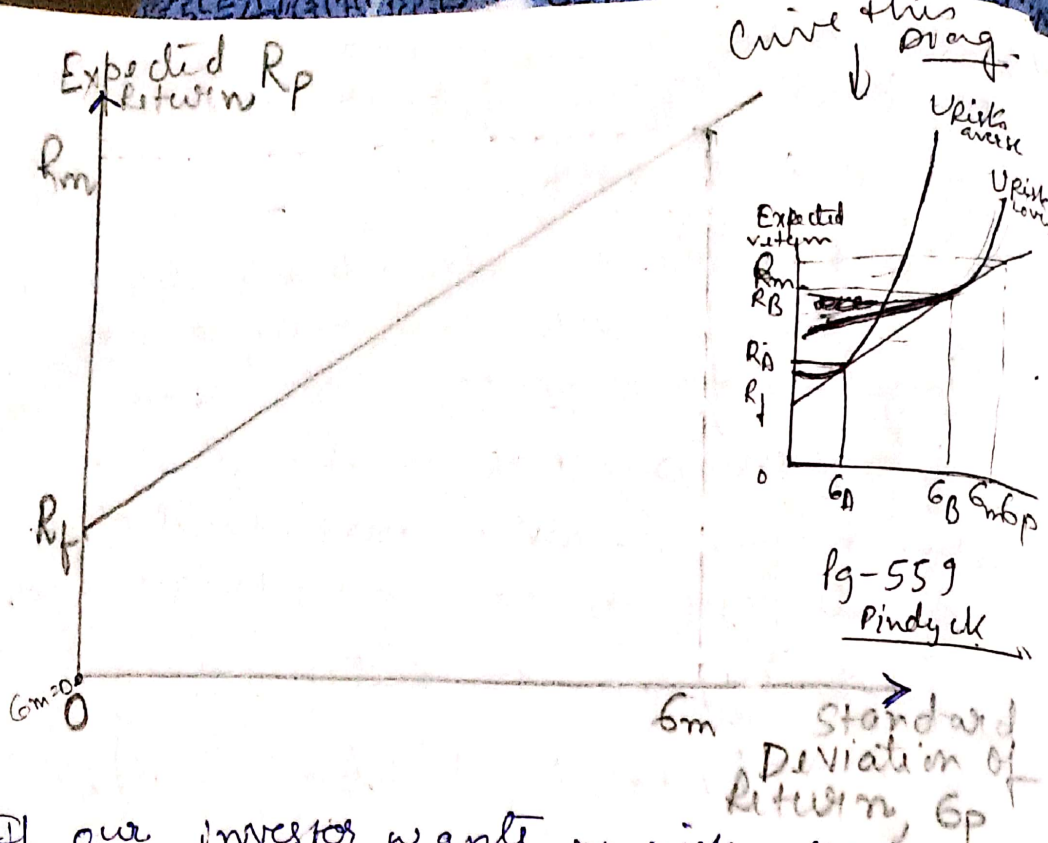 Give this
Diag.
Expected Rp
Return
Rm
Rf
σm=0
0
σm
Standard
Deviation of
Return, σp
U Risk
averse
U Risk
lover
Expected
return
Rm
RB
RA
Rf
0
σA
σB
σm
σp
Pg-559
Pindyck
If our investor wants